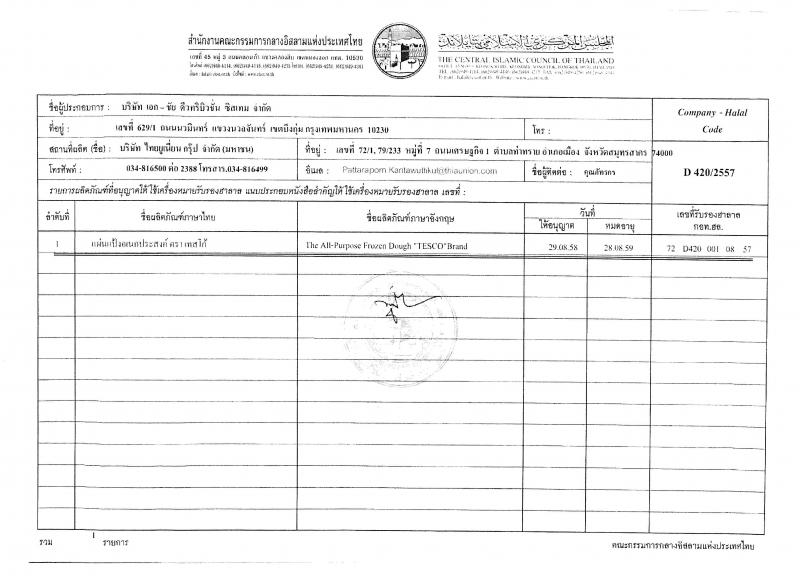 สำนักงานคณะกรรมการกลางอิสลามแห่งประเทศไทย
เลขที่ 45 หมู่ 3 ถนนคลองเก้า แขวงคลองสิบ เขตหนองจอก กทม. 10530
THE CENTRAL ISLAMIC COUNCIL OF THAILAND
ชื่อผู้ประกอบการ : บริษัท เอก-ชัย ดีสทริบิวชั่น ซิสเทม จำกัด
Company - Halal
Code
ที่อยู่ : เลขที่ 629/1 ถนนนวมินทร์ แขวงนวลจันทร์ เขตบึงกุ่ม กรุงเทพมหานคร 10230
โทร :
สถานที่ผลิต (ชื่อ) : บริษัท ไทยยูเนี่ยน กรุ๊ป จำกัด (มหาชน)
ที่อยู่ : เลขที่ 72/1, 79/233 หมู่ที่ 7 ถนนเศรษฐกิจ 1 ตำบลท่าทราย อำเภอเมือง จังหวัดสมุทรสาคร 74000
โทรศัพท์ : 034-816500 ต่อ 2388 โทรสาร.034-816499
อีเมล : Pattaraporn.Kantawuttikul@thaiunion.com
ชื่อผู้ติดต่อ : คุณภัทรกร
D 420/2557
รายการผลิตภัณฑ์ที่อนุญาตให้ใช้เครื่องหมายรับรองฮาลาล แนบประกอบหนังสือสำคัญให้ใช้เครื่องหมายรับรองฮาลาล เลขที่ :
ลำดับที่
ชื่อผลิตภัณฑ์ภาษาไทย
ชื่อผลิตภัณฑ์ภาษาอังกฤษ
วันที่
ให้อนุญาต
หมดอายุ
เลขที่รับรองฮาลาล
กอท.ฮล.
1 แผ่นแป้งอเนกประสงค์ ตรา เทสโก้ The All-Purpose Frozen Dough "TESCO"Brand 29.08.58 28.08.59 72 D420 001 08 57
รวม 1 รายการ
คณะกรรมการกลางอิสลามแห่งประเทศไทย